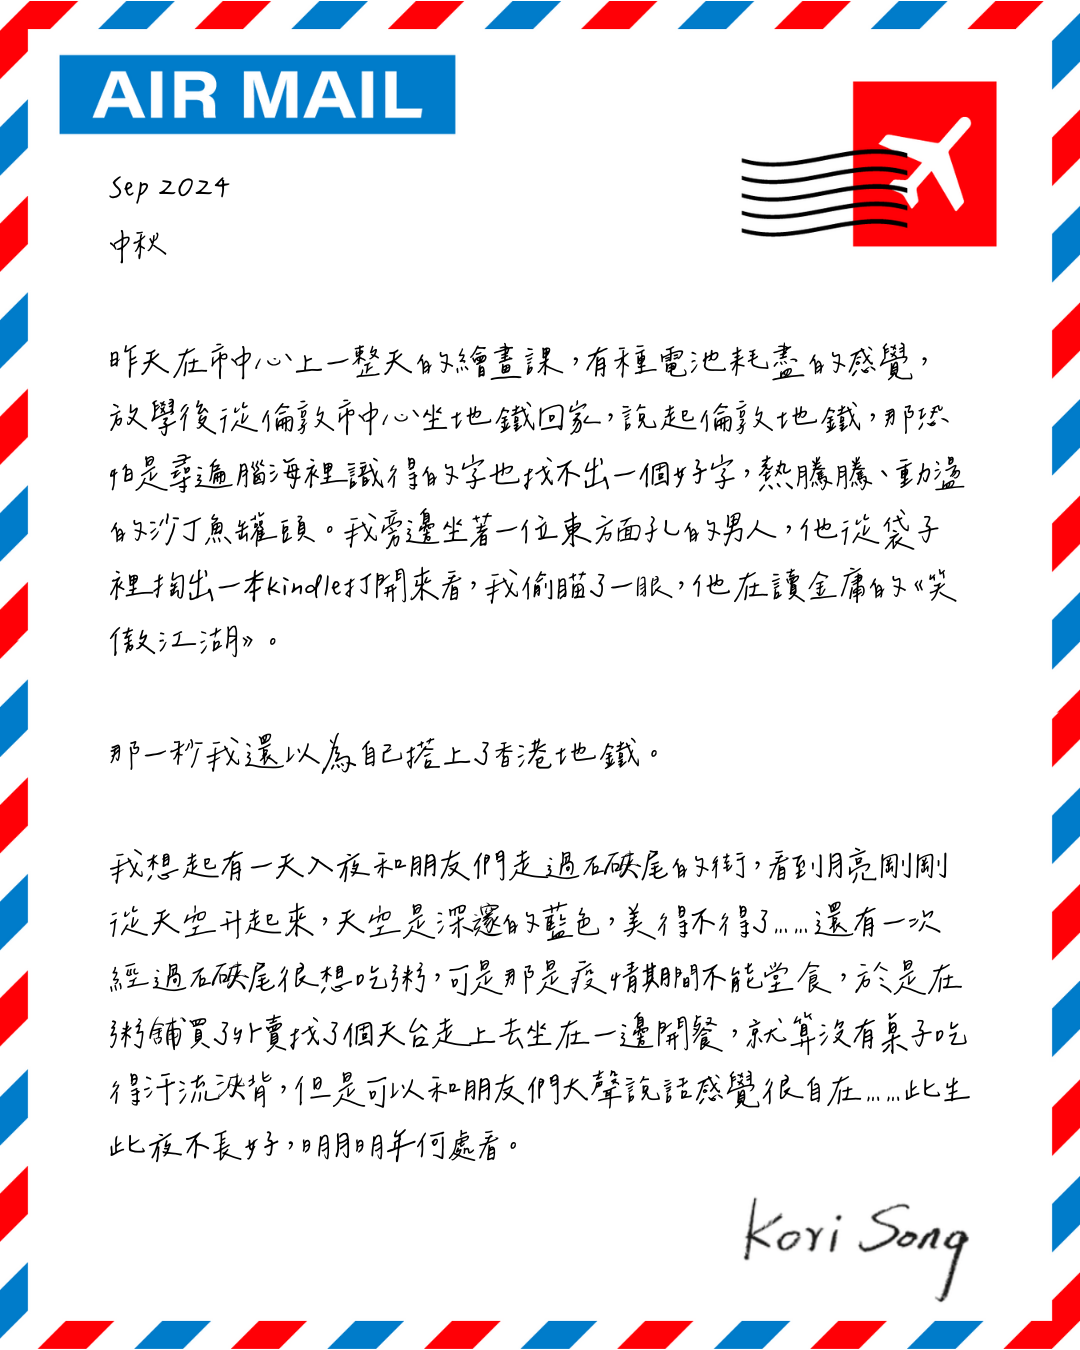 AIR MAIL
Sep 2024
中秋
昨天在市中心上一整天的繪畫課，有種電池耗盡的感覺，
放學後從倫敦市中心坐地鐵回家，說起倫敦地鐵，那恐
怕是尋遍腦海裡識得的字也找不出一個好字，熱騰騰、動盪
的沙丁魚罐頭。我旁邊坐著一位東方面孔的男人，他從袋子
裡掏出一本kindle打開來看，我偷瞄了一眼，他在讀金庸的《笑
傲江湖》。
那一秒我還以為自己搭上了香港地鐵。
我想起有一天入夜和朋友們走過石硤尾的街，看到月亮剛剛
從天空升起來，天空是深邃的藍色，美得不得了……還有一次
經過石硤尾很想吃粥，可是那是疫情期間不能堂食，於是在
粥舖買了外賣找了個天台走上去坐在一邊開餐，就算沒有桌子吃
得汗流浹背，但是可以和朋友們大聲說話感覺很自在……此生
此夜不長好，明月明年何處看。
Kori Song